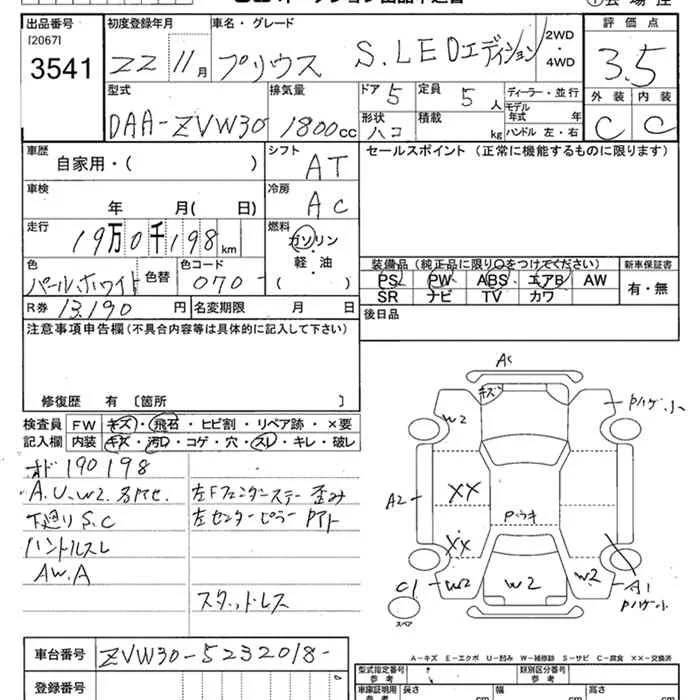 出品番号 初度登録年月 車名・グレード 2WD・4WD 評価点
[2067]
3541 22 11月 プリウス S.LEDエディション 3.5
型式 排気量 ドア 5 定員 5人 ディーラー・並行 外装 内装
DAA-ZVW30 1800cc 形状 ハコ 積載 kg モデル年式 年 C C
ハンドル 左・右
車歴 シフト セールスポイント (正常に機能するものに限ります)
自家用・( ) AT
車検 冷房
年 月( 日) AC
走行 燃料
19万0千198km ガソリン・軽・油 ( )
色 色替 色コード 装備品 (純正品に限り○をつけてください) 新車保証書
パールホワイト 070- PS PW ABS エアB AW 有・無
SR ナビ TV カワ
R券 13,190円 名変期限 月 日 後日品
注意事項申告欄 (不具合内容等は具体的に記入して下さい)
修復歴 有 [箇所 ]
検査員 FW キズ・飛石・ヒビ割・リペア跡・×要
記入欄 内装 キズ・汚レ・コゲ・穴・スレ・キレ・破レ
オド190198
A.U.W2.
左Fフェンダーステー歪み
下廻りS.C 左センターピラー Pアト
ハンドルスレ
AW.A
スタッドレス
AS
キズ
W2
Pハゲ小
A2
XX
P.ウキ
XX
C1
W2
W2
W2
A1
Pハゲ小
スペア
車台番号 ZVW30-5232018-
A-キズ E-エクボ U-凹み W-補修跡 S-サビ C-腐食 ××-交換済
登録番号
型式指定番号 参考 類別区分番号 参考
車庫証明用 参考 長さ cm 幅 cm 高さ cm